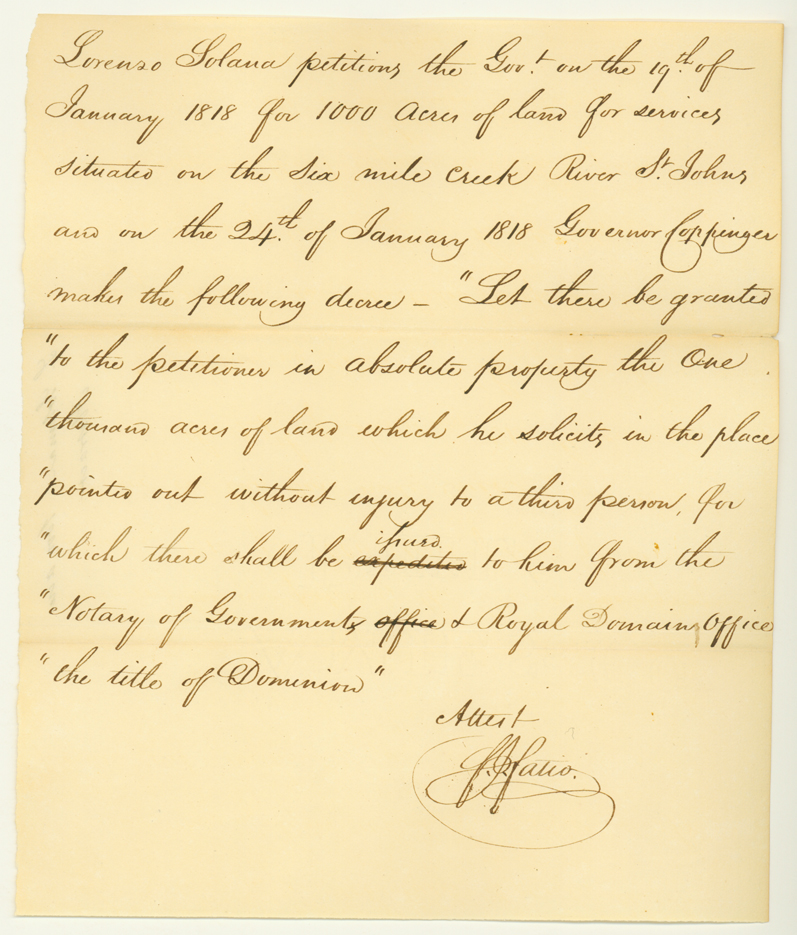 Lorenzo Solana petitions the Gov.t on the 19th. of
January 1818 for 1000 Acres of land for services
situated on the Six mile creek River St. Johns
and on the 24.th of January 1818 Governor Coppinger
makes the following decree — "Let there be granted
"to the petitioner in absolute property the One
"thousand acres of land which he solicits in the place
"pointed out without injury to a third person, for
"which there shall be expedited issued to him from the
"Notary of Governments office & Royal Domains Office
"the title of Dominion"
Attest
F. J. Fatio.